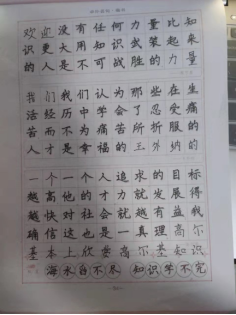 欢迎没有任何力量比知
识更大用知识武装起来
的人是不可战胜的力量
我们我们认为那些在生
活经历中学会了忍受痛
苦而不为痛苦所折服的
人才是幸福的
一个一个人追求的目标
越高他的才力就发展得
越快对社会就越有益我
确信这也是一真理高尔
基本上欣
海水舀不尽 知识学不完